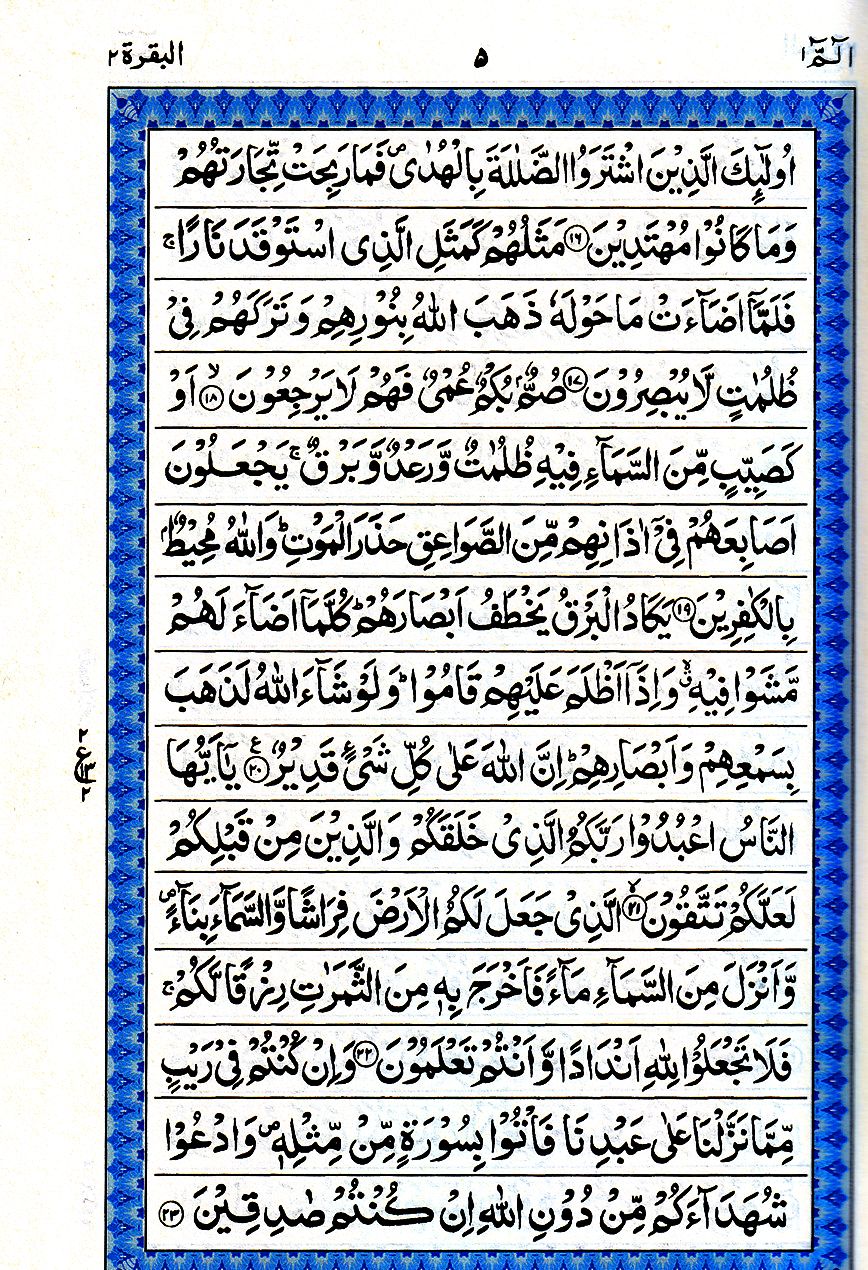 الٓـمّٓ ١
٥
البقرة ٢
اُولٰٓئِكَ الَّذِيْنَ اشْتَرَوُا الضَّلٰلَةَ بِالْهُدٰى ۪ فَمَا رَبِحَتْ تِّجَارَتُهُمْ
وَمَا كَانُوْا مُهْتَدِيْنَ ﴿١٦﴾ مَثَلُهُمْ كَمَثَلِ الَّذِى اسْتَوْقَدَ نَارًا ۚ
فَلَمَّآ اَضَآءَتْ مَا حَوْلَهٗ ذَهَبَ اللّٰهُ بِنُوْرِهِمْ وَتَرَكَهُمْ فِىْ
ظُلُمٰتٍ لَّا يُبْصِرُوْنَ ﴿١٧﴾ صُمٌّۢ بُكْمٌ عُمْىٌ فَهُمْ لَا يَرْجِعُوْنَ ۙ﴿١٨﴾ اَوْ
كَصَيِّبٍ مِّنَ السَّمَآءِ فِيْهِ ظُلُمٰتٌ وَّرَعْدٌ وَّبَرْقٌ ۚ يَجْعَلُوْنَ
اَصَابِعَهُمْ فِىْٓ اٰذَانِهِمْ مِّنَ الصَّوَاعِقِ حَذَرَ الْمَوْتِ ؕ وَاللّٰهُ مُحِيْطٌۢ
بِالْكٰفِرِيْنَ ﴿١٩﴾ يَكَادُ الْبَرْقُ يَخْطَفُ اَبْصَارَهُمْ ؕ كُلَّمَآ اَضَآءَ لَهُمْ
مَّشَوْا فِيْهِ ۙۗ وَاِذَآ اَظْلَمَ عَلَيْهِمْ قَامُوْا ؕ وَلَوْ شَآءَ اللّٰهُ لَذَهَبَ
بِسَمْعِهِمْ وَاَبْصَارِهِمْ ؕ اِنَّ اللّٰهَ عَلٰى كُلِّ شَىْءٍ قَدِيْرٌ ﴿٢٠﴾ يٰٓاَيُّهَا
٢
ع ١٣
٢
النَّاسُ اعْبُدُوْا رَبَّكُمُ الَّذِىْ خَلَقَكُمْ وَالَّذِيْنَ مِنْ قَبْلِكُمْ
لَعَلَّكُمْ تَتَّقُوْنَ ﴿٢١﴾ الَّذِىْ جَعَلَ لَكُمُ الْاَرْضَ فِرَاشًا وَّالسَّمَآءَ بِنَآءً ۪
وَّاَنْزَلَ مِنَ السَّمَآءِ مَآءً فَاَخْرَجَ بِهٖ مِنَ الثَّمَرٰتِ رِزْقًا لَّكُمْ ۚ
فَلَا تَجْعَلُوْا لِلّٰهِ اَنْدَادًا وَّاَنْتُمْ تَعْلَمُوْنَ ﴿٢٢﴾ وَاِنْ كُنْتُمْ فِىْ رَيْبٍ
مِّمَّا نَزَّلْنَا عَلٰى عَبْدِنَا فَاْتُوْا بِسُوْرَةٍ مِّنْ مِّثْلِهٖ ۪ وَادْعُوْا
شُهَدَآءَكُمْ مِّنْ دُوْنِ اللّٰهِ اِنْ كُنْتُمْ صٰدِقِيْنَ ﴿٢٣﴾